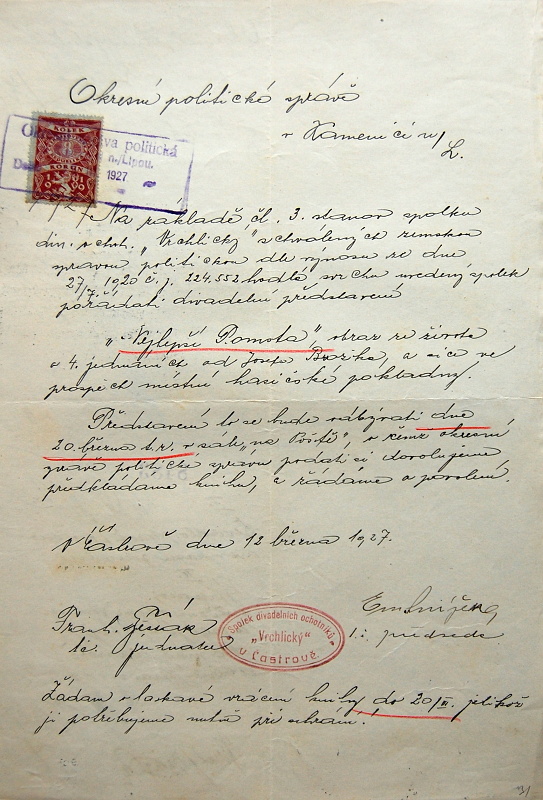 Okresní politické správě
v Kamenici n/
L.
KOLEK
KORUN
politická
n./Lipou.
1927
Na základě čl. 3. stanov spolku
div. ocht. „Vrchlický" schválených zemskou
správou politickou dle výnosu ze dne
27/7. 1920 č. j. 224.552 hodlá svrchu uvedený spolek
pořádati divadelní představení
„Nejlepší Partie" obraz ze života
o 4. jednáních od Josefa a sice ve
prospěch místní hasičské pokladny.
Představení to se bude odbývati dne
20. března t. r. v sále „na Poště", o čemž okresní
správě politické zprávu podati si dovolujeme
předkládáme knihu, a žádáme o povolení.
V Častrově dne 12 března 1927.
Frant.
t. č. jednatel
Spolek divadelních ochotníků
„Vrchlický"
v Častrově.
t. č. předseda
Žádám o laskavé vrácení knihy do 20/III. jelikož
ji potřebujeme nutně při